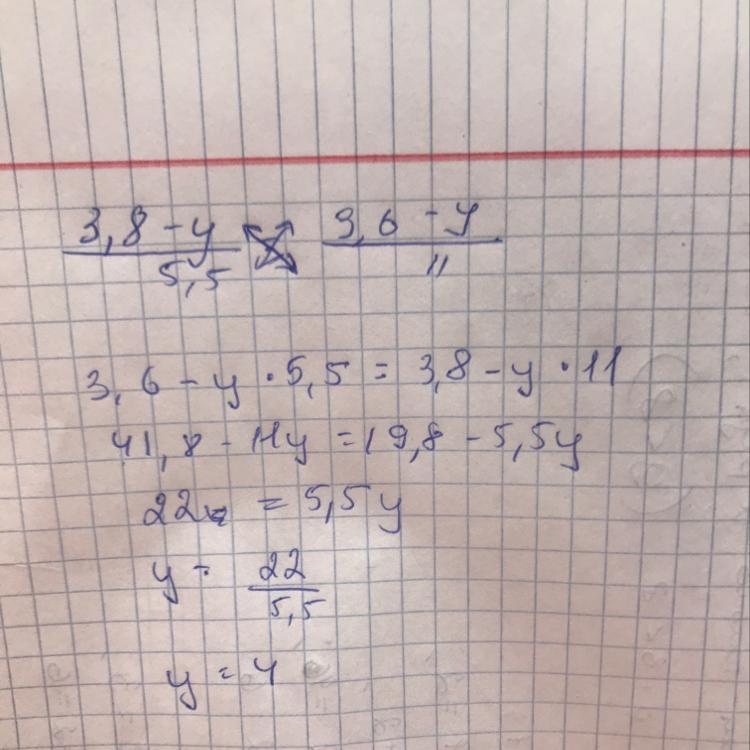 3,8 - y 3,6 - y
5,5 11
3,6 - y · 5,5 = 3,8 - y · 11
41,8 - 11y = 19,8 - 5,5y
22 = 5,5y
y = 22
5,5
y = 4